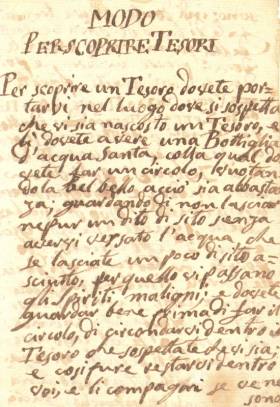 MODO
PER SCOPRIRE TESORI
Per scoprire un Tesoro dovete por-
tarvi nel luogo dove si sospetta
che vi sia nascosto un Tesoro, e
li dovete avere una Bottiglia
d'acqua Santa, colla qual do
vete far un circolo, vuotan
dola bel bello acciò sia abasta
za; guardando di non lasciar
neppur un dito di sito senza
avervi versato l'acqua, che
se lasciate un poco di sito a-
sciutto, per quello vi passano
gli spiriti maligni; e dovete
guardar bene prima di far il
circolo, di circondarvi dentro il
Tesoro che sospettate che vi sia;
e così pure restarvi dentro
voi, e li compagni se ve ne
sono